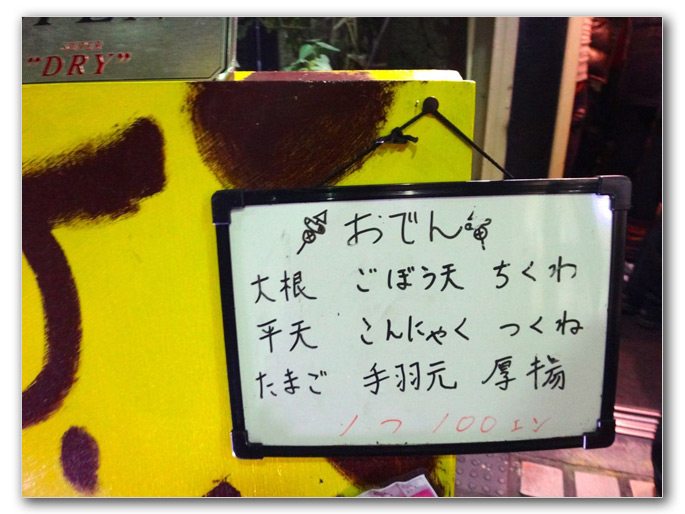 "DRY"
おでん
大根 ごぼう天 ちくわ
平天 こんにゃく つくね
たまご 手羽元 厚揚
1つ 100エン